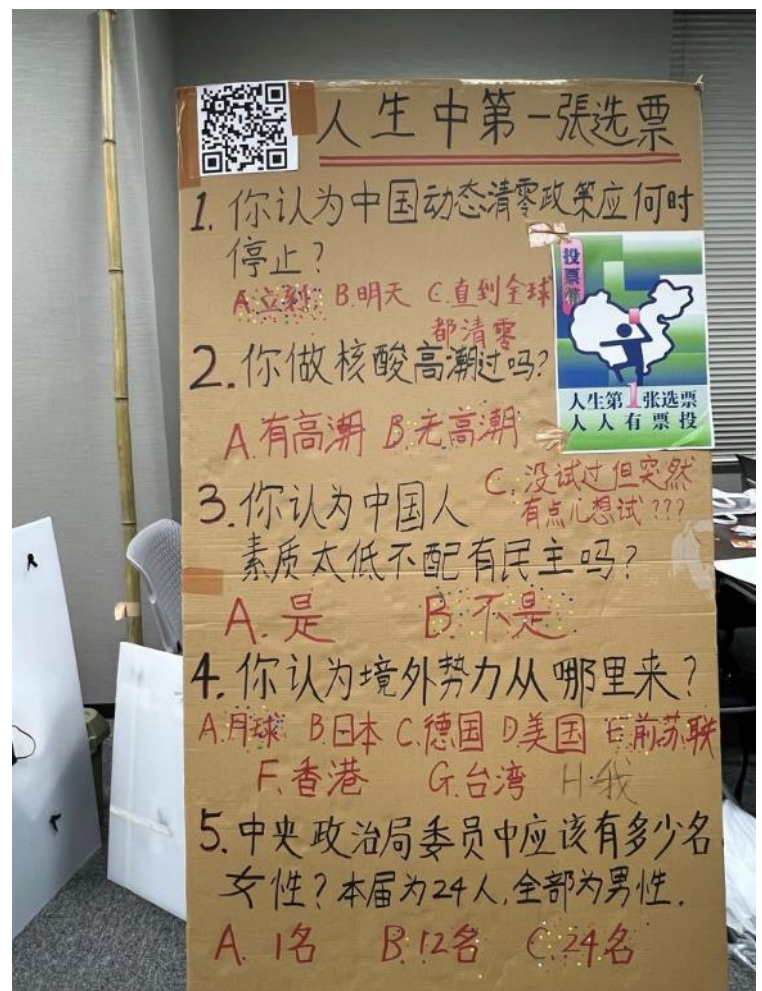 人生中第一張选票
1. 你认为中国动态清零政策应何时
停止？
A.立刻 B.明天 C.直到全球
都清零
投票
人生第1张选票
人人有票投
2. 你做核酸高潮过吗？
A.有高潮 B.无高潮
C. 没试过但突然
有点儿想试???
3. 你认为中国人
素质太低不配有民主吗？
A. 是 B. 不是
4. 你认为境外势力从哪里来？
A.月球 B日本 C.德国 D美国 E.前苏联
F.香港 G.台湾 H.我
5. 中央政治局委员中应该有多少名
女性？本届为24人,全部为男性.
A. 1名 B.12名 C.24名